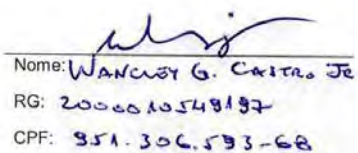 Nome: WANCLEY G. CASTRO JR
RG: 2000010549197
CPF: 951.306.593-68